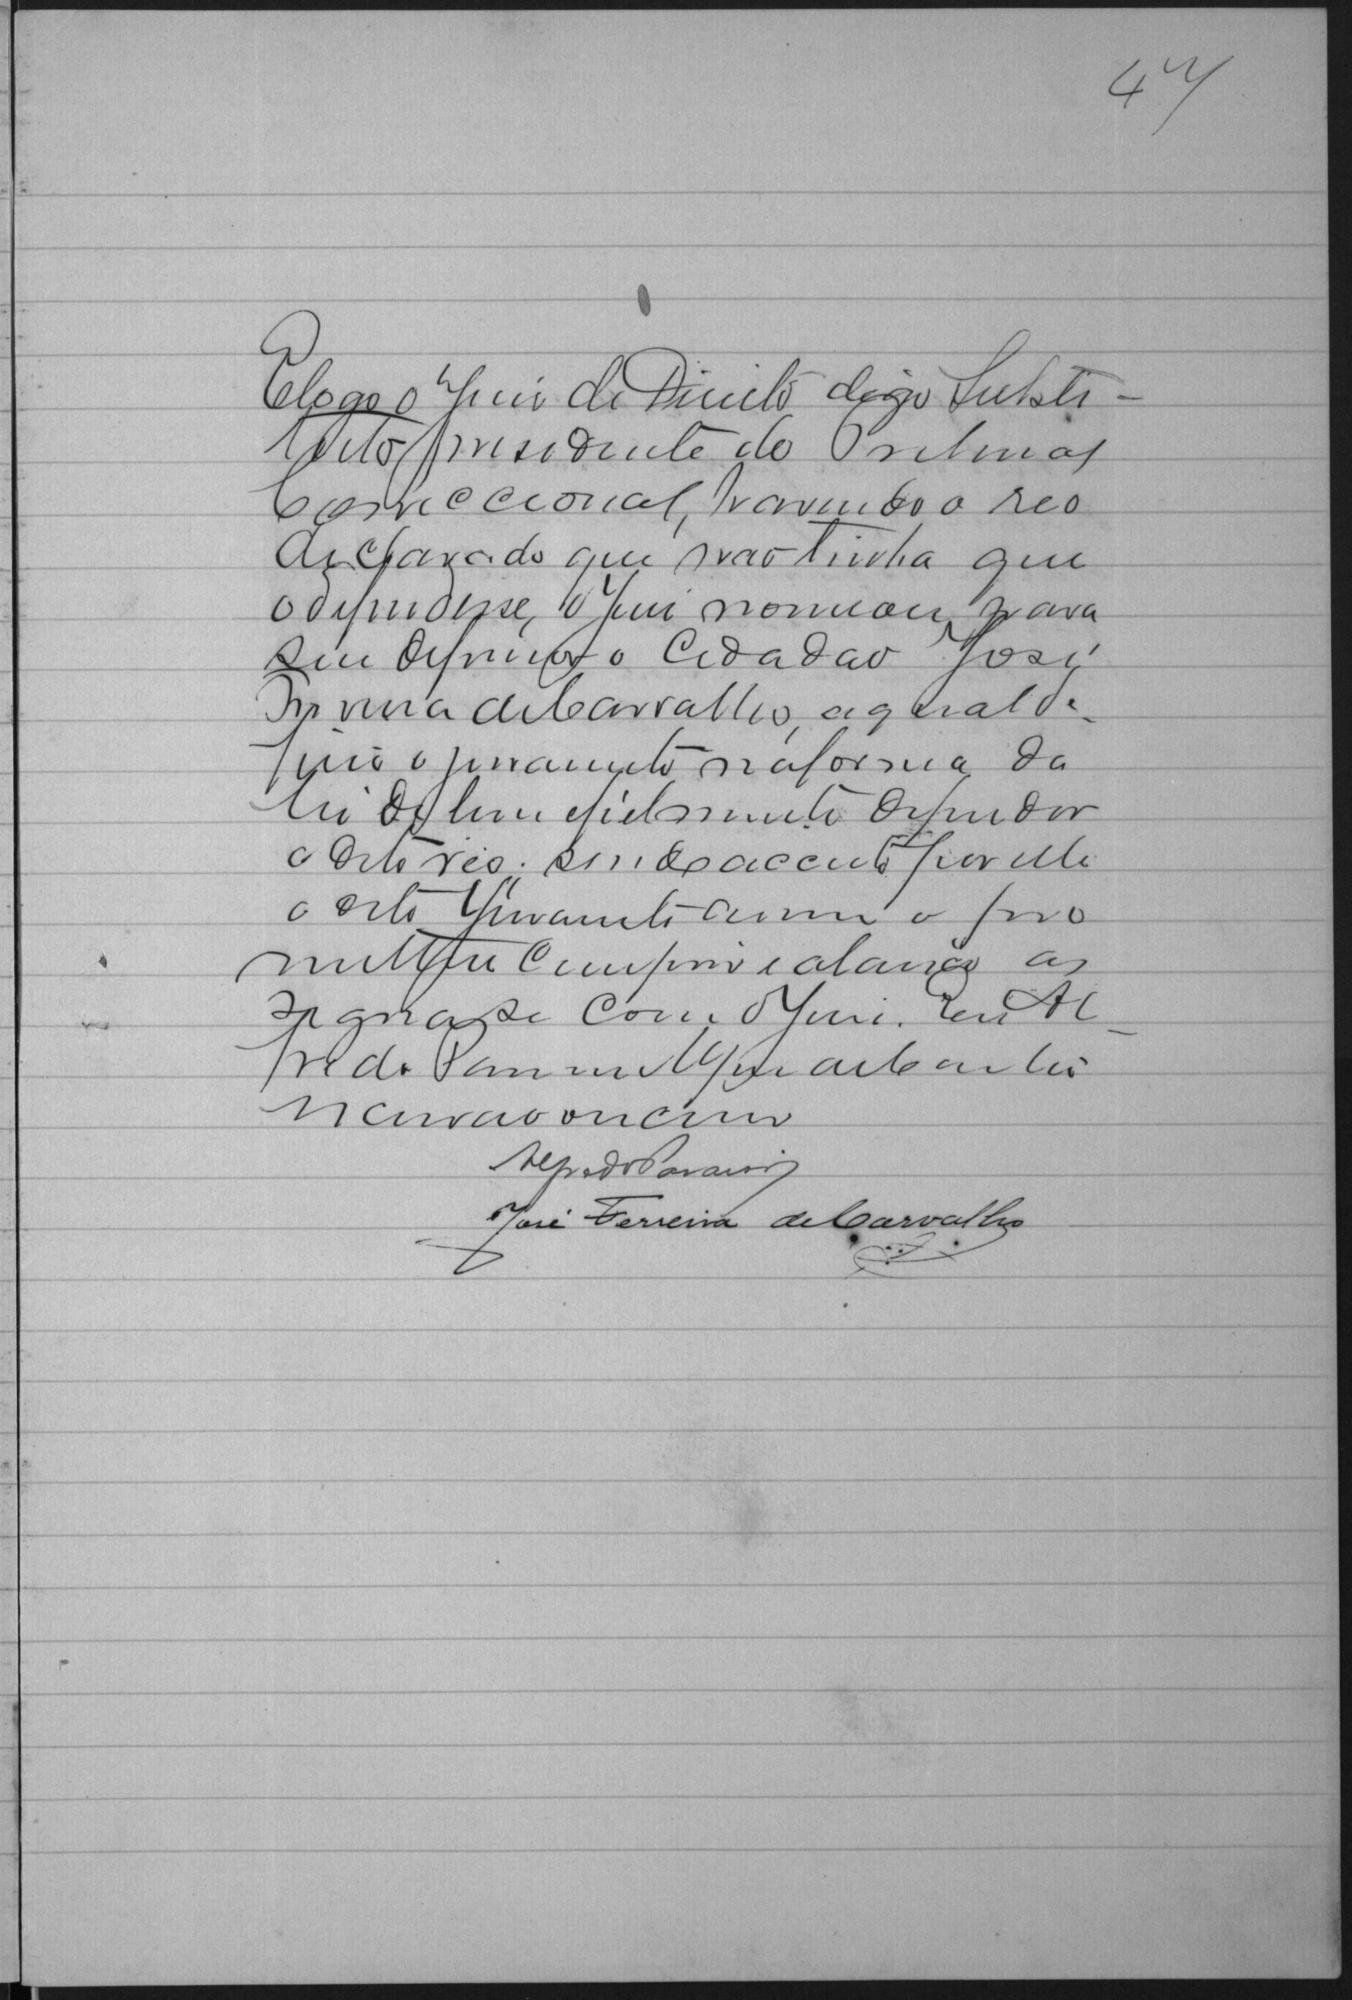 47
E logo o Juiz de Direito digo Substi-
tuto presidente do Tribunal
Correccional, havendo o reo
declarado que não tinha quem
o defendesse, o Juiz nomeou para
seu defensor o Cidadão José
Ferreira de Carvalho, a qual de-
firio o juramento na forma da
lei de bem e fielmente defender
o dito reo. sendo acceito por elle
o dito Juramento assim o pro
metteu cumprir e abaixo as
signa se com o Juiz. Eu Al-
fredo
escrivão
José Ferreira de Carvalho